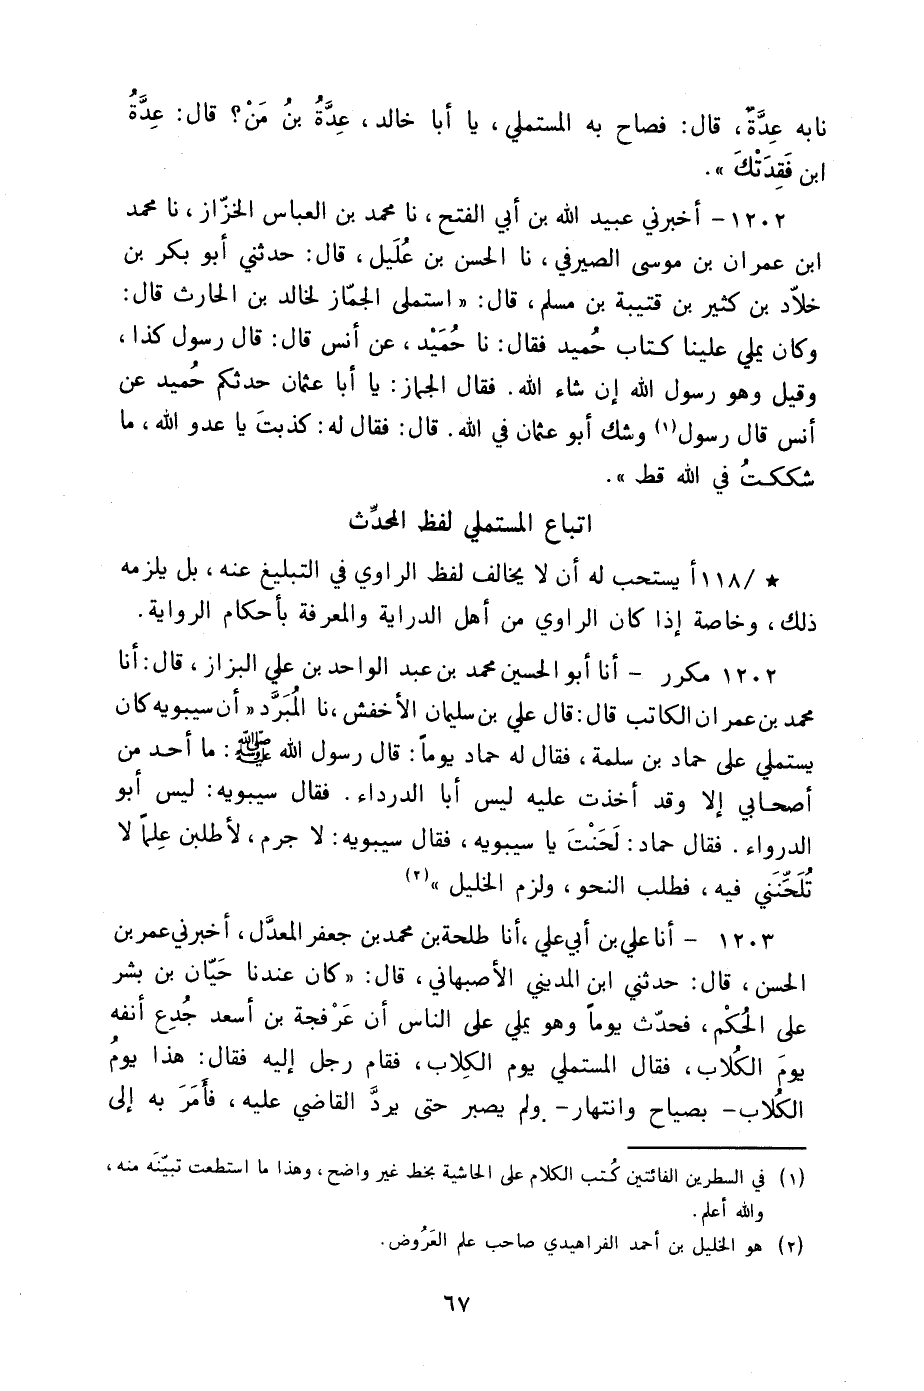 نابه عِدَّةٌ، قال: فصاح به المستملي، يا أبا خالد، عِدَّةُ بنُ مَنْ؟ قال: عِدَّةُ
ابن فَقِدَتْكَ ».
١٢٠٢ – أخبرني عبيد الله بن أبي الفتح، نا محمد بن العباس الخزّاز، نا محمد
ابن عمران بن موسى الصيرفي، نا الحسن بن عُلَيل، قال: حدثني أبو بكر بن
خلاّد بن كثير بن قتيبة بن مسلم، قال: « استملى الجمّاز لخالد بن الحارث قال:
وكان يملي علينا كتاب حُميد فقال: نا حُمَيْد، عن أنس قال: قال رسول كذا،
وقيل وهو رسول الله إن شاء الله. فقال الجماز: يا أبا عثمان حدثكم حُميد عن
أنس قال رسول(١) وشك أبو عثمان في الله. قال: فقال له: كذبتَ يا عدو الله، ما
شككتُ في الله قط ».
اتباع المستملي لفظ المحدِّث
★ /١١٨أ يستحب له أن لا يخالف لفظ الراوي في التبليغ عنه، بل يلزمه
ذلك، وخاصة إذا كان الراوي من أهل الدراية والمعرفة بأحكام الرواية.
١٢٠٢ مكرر – أنا أبو الحسين محمد بن عبد الواحد بن علي البزاز، قال: أنا
محمد بن عمران الكاتب قال: قال علي بن سليمان الأخفش، نا المُبَرَّد « أن سيبويه كان
يستملي على حماد بن سلمة، فقال له حماد يوماً: قال رسول الله ﷺ: ما أحد من
أصحابي إلا وقد أخذت عليه ليس أبا الدرداء. فقال سيبويه: ليس أبو
الدرواء. فقال حماد: لَحَنْتَ يا سيبويه، فقال سيبويه: لا جرم، لأطلبن عِلماً لا
تُلَحِّنَني فيه، فطلب النحو، ولزم الخليل »(٢)
١٢٠٣ – أنا علي بن أبي علي، أنا طلحة بن محمد بن جعفر المعدَّل، أخبرني عمر بن
الحسن، قال: حدثني ابن المديني الأصبهاني، قال: « كان عندنا حَيّان بن بشر
على الحُكْم، فحدّث يوماً وهو يملي على الناس أن عَرْفجة بن أسعد جُدِع أنفه
يومَ الكُلاب، فقال المستملي يوم الكِلاب، فقام رجل إليه فقال: هذا يومُ
الكُلاب – بصياح وانتهار – ولم يصبر حتى يردَّ القاضي عليه، فأَمَرَ به إلى
(١) في السطرين الفائتين كُتب الكلام على الحاشية بخط غير واضح، وهذا ما استطعت تبيّنَه منه،
والله أعلم.
(٢) هو الخليل بن أحمد الفراهيدي صاحب علم العَرُوض.
٦٧